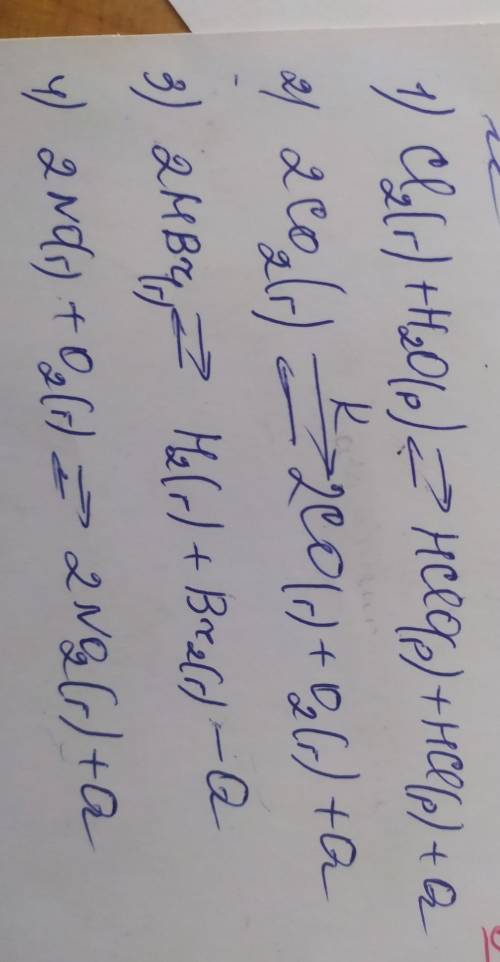 1) Cl₂(г) + H₂O(р) ⇄ HClO(р) + HCl(р) + Q
2) 2CO₂(г) ⇄ᴷ 2CO(г) + O₂(г) + Q
3) 2HBr(г) ⇄ H₂(г) + Br₂(г) – Q
4) 2NO(г) + O₂(г) ⇄ 2NO₂(г) + Q